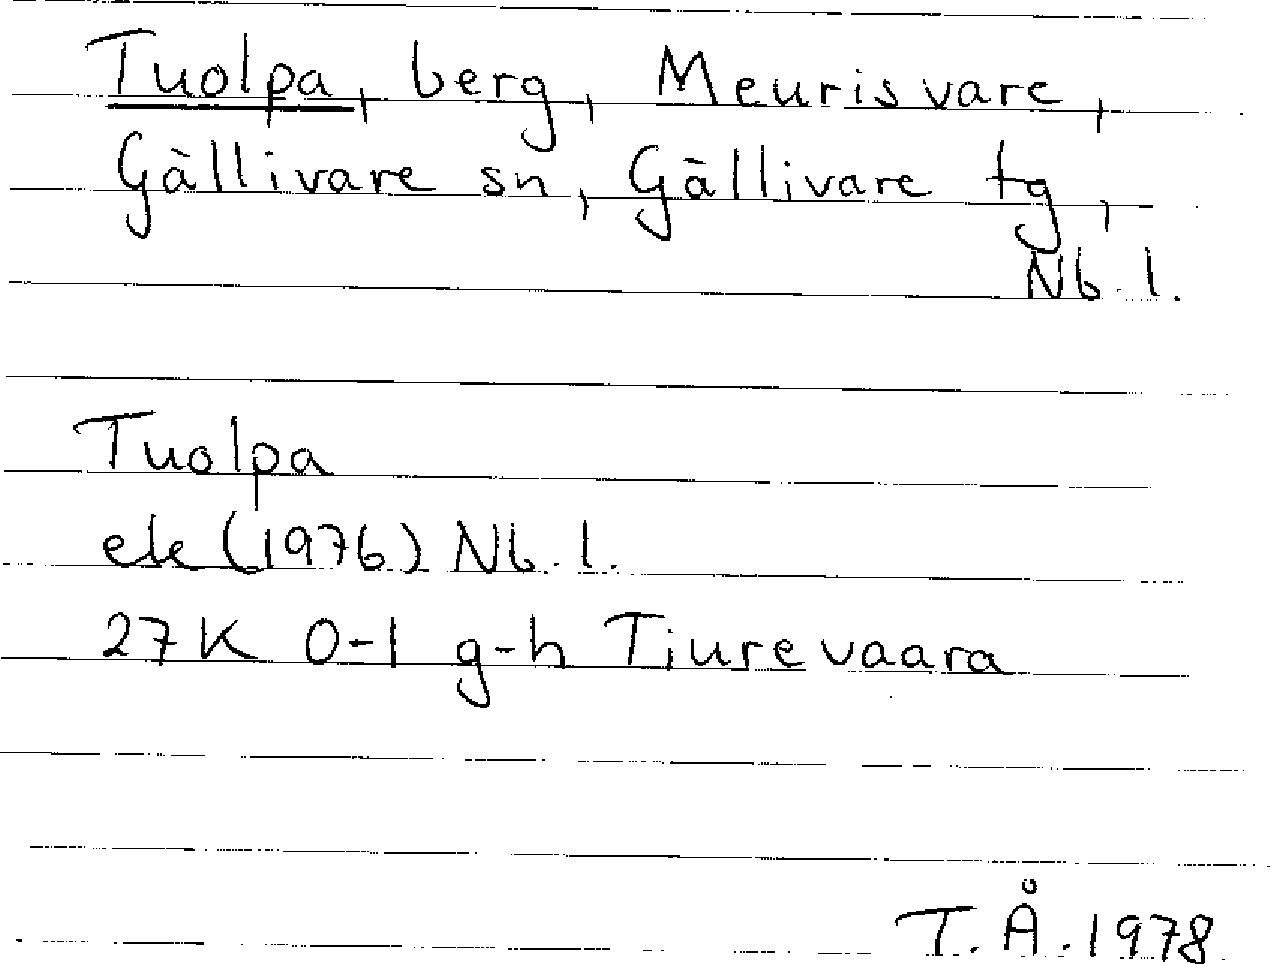 Tuolpa, berg, Meurisvare,
Gällivare sn, Gällivare tg,
Nb. l.
Tuolpa
ek (1976) Nb. l.
27K 0-1 g-h Tiurevaara
T. Å. 1978